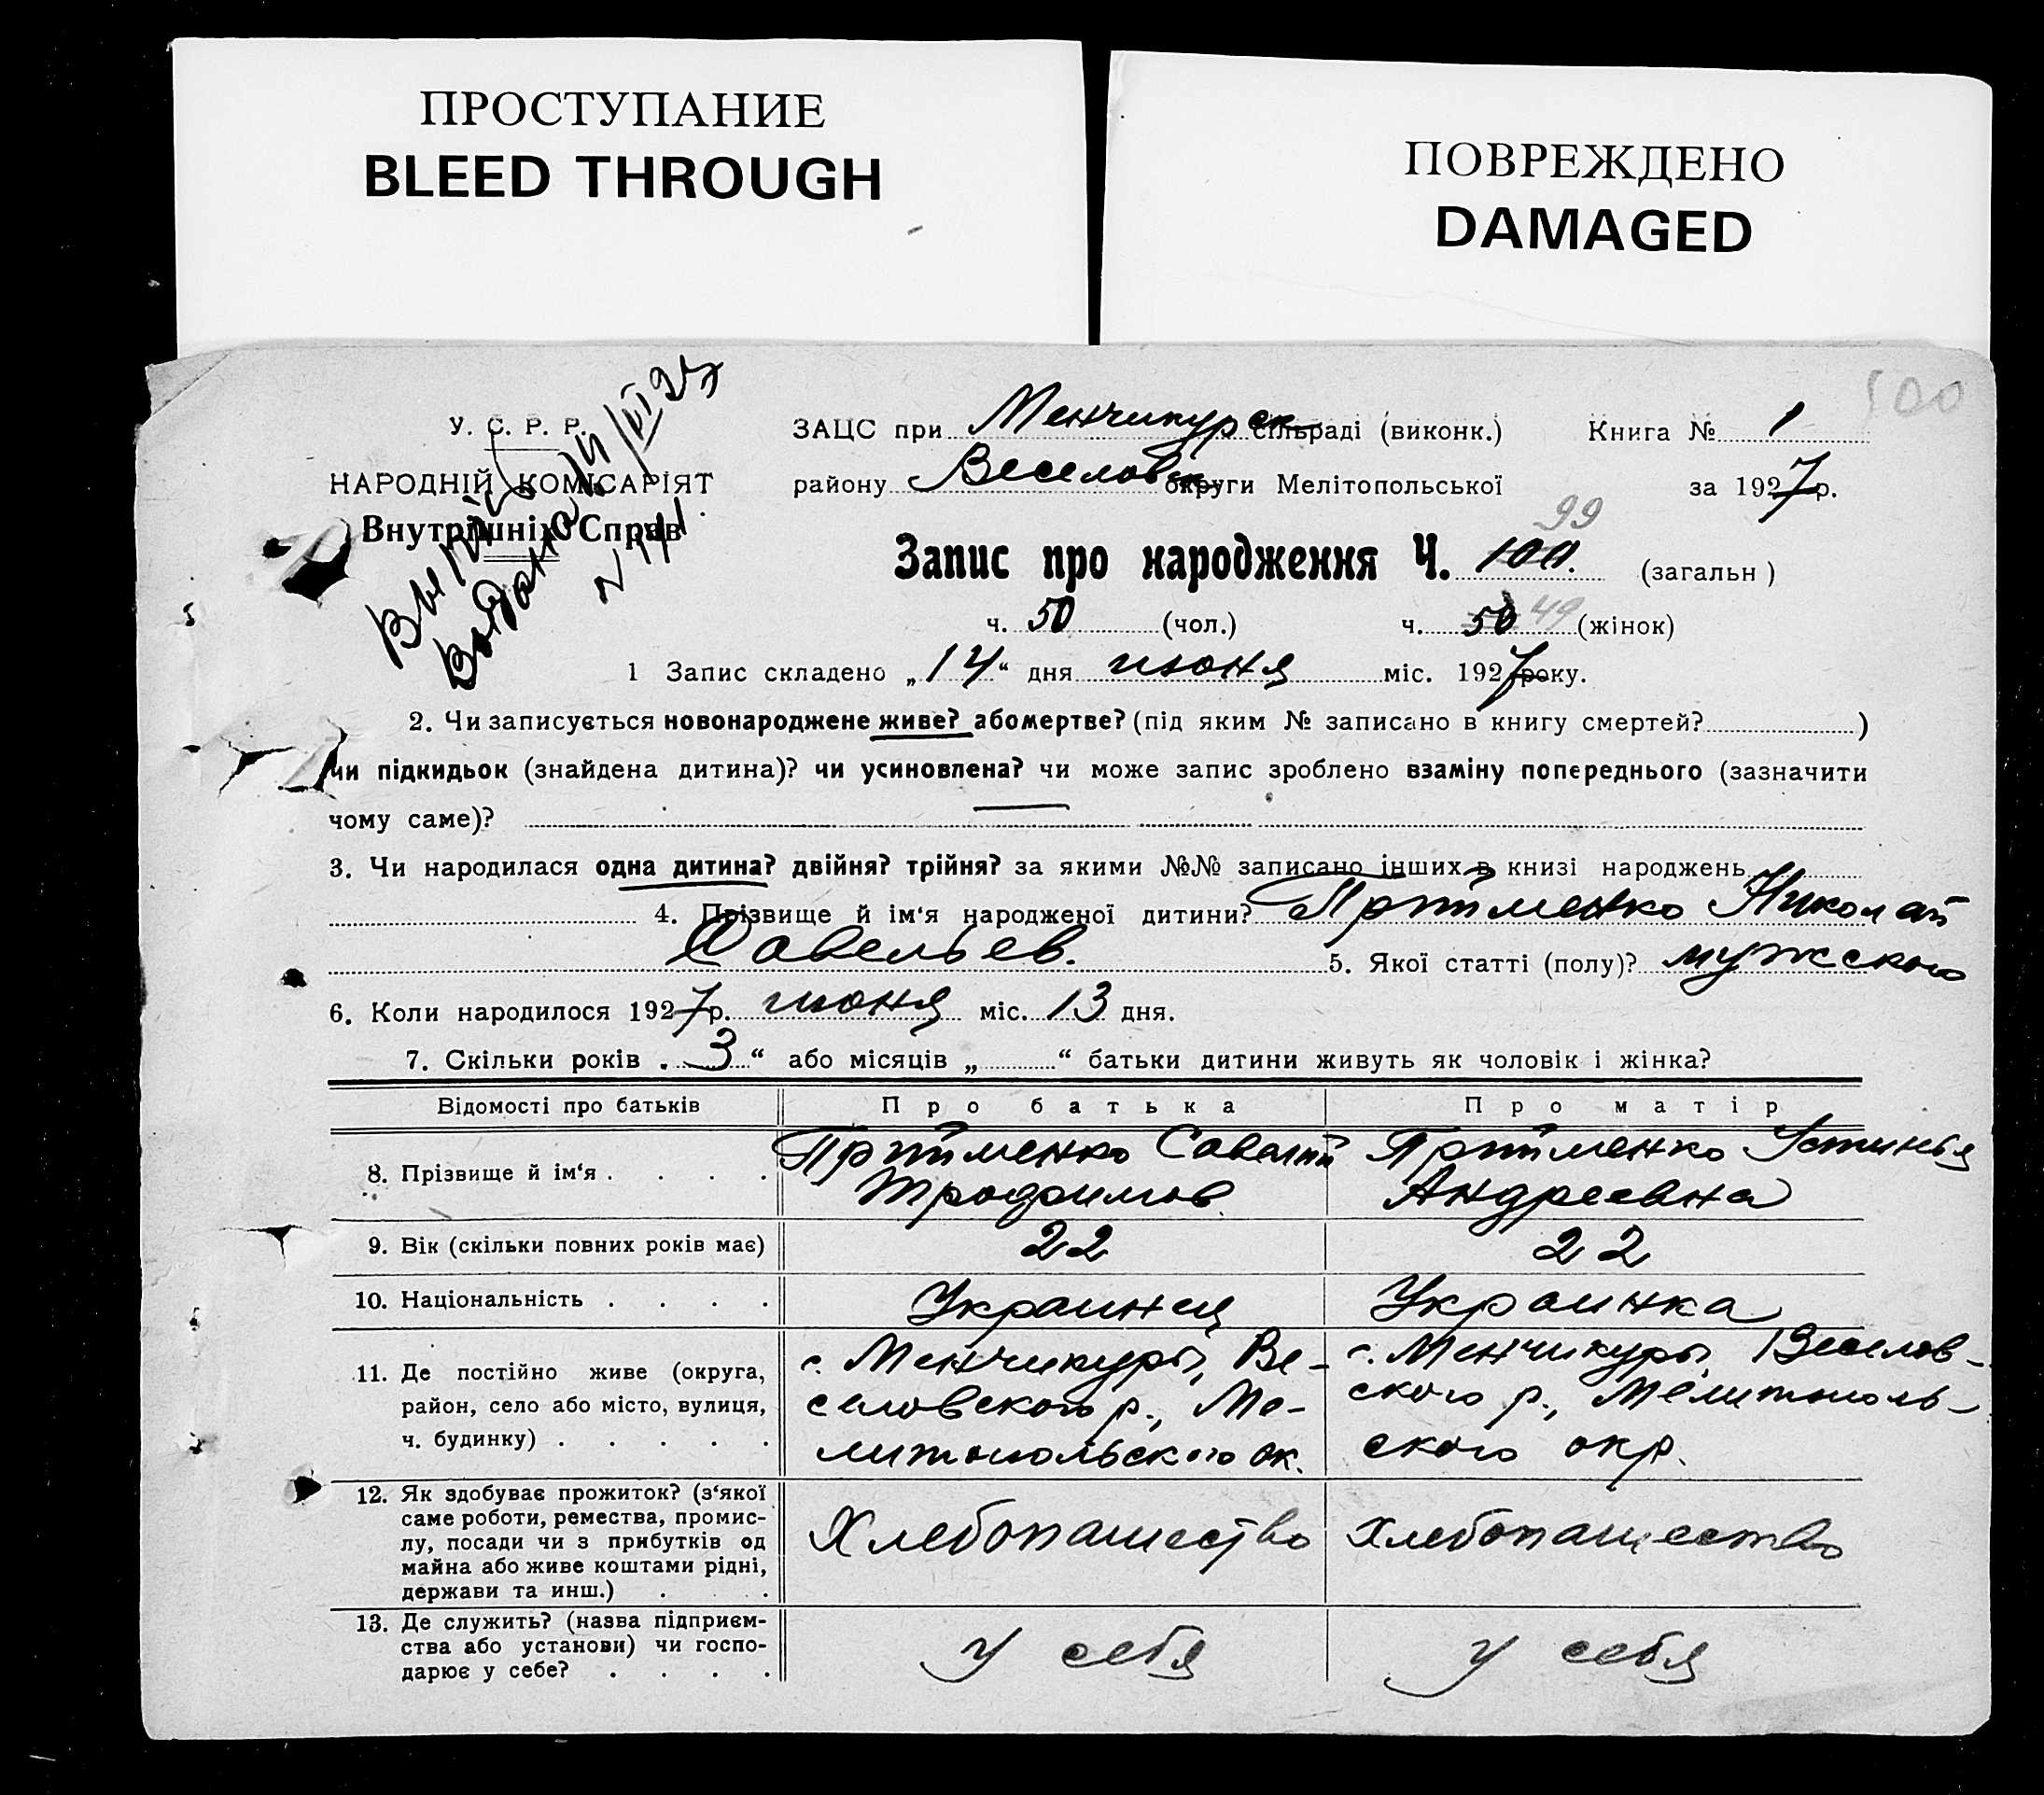 ПРОСТУПАНИЕ
BLEED THROUGH
ПОВРЕЖДЕНО
DAMAGED
500
У. С. Р. Р.
НАРОДНІЙ КОМІСАРІЯТ
Внутрішніх Справ
14/VI 27
ЗАЦС при Менчикурск сільраді (виконк.) Книга № 1
району Веселовск округи Мелітопольської за 1927 р.
99
Запис про народження Ч. 100. (загальн )
ч. 50 (чол.) ч. 50 49 (жінок)
1 Запис складено „14“ дня июня міс. 1927 року.
2. Чи записується новонароджене живе? або мертве? (під яким № записано в книгу смертей? )
чи підкидьок (знайдена дитина)? чи усиновлена? чи може запис зроблено взаміну попереднього (зазначити
чому саме)?
3. Чи народилася одна дитина? двійня? трійня? за якими №№ записано інших в книзі народжень
4. Прізвище й ім‘я народженої дитини? Николай
Савельев. 5. Якої статті (полу)? мужского
6. Коли народилося 1927 р. июня міс. 13 дня.
7. Скільки років „3“ або місяців „ “ батьки дитини живуть як чоловік і жінка?
Відомості про батьків Про батька Про матір
8. Прізвище й ім‘я . . . . Савелий Устинья
Трофимов Андреевна
9. Вік (скільки повних років має) 22 22
10. Національність . . . . Украинец Украинка
11. Де постійно живе (округа, с. Менчикуры, Ве- с. Менчикуры, Веселов-
район, село або місто, вулиця, селовского р., Ме- ского р., Мелитополь-
ч. будинку) . . . . . литопольского ок. ского окр.
12. Як здобуває прожиток? (з‘якої
саме роботи, ремества, промис-
лу, посади чи з прибутків од Хлебопашество Хлебопашество
майна або живе коштами рідні,
держави та инш.) . .
13. Де служить? (назва підприєм-
ства або установи) чи госпо- У себя У себя
дарює у себе? . . . .